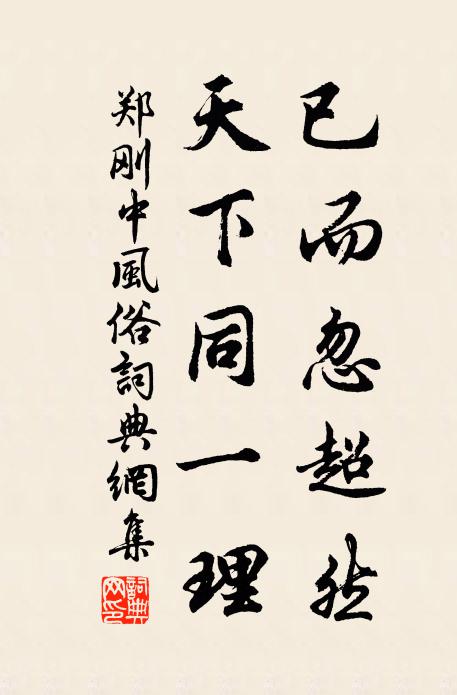 已而忽超然
天下同一理
郑刚中風俗詞典網集
詞典网印